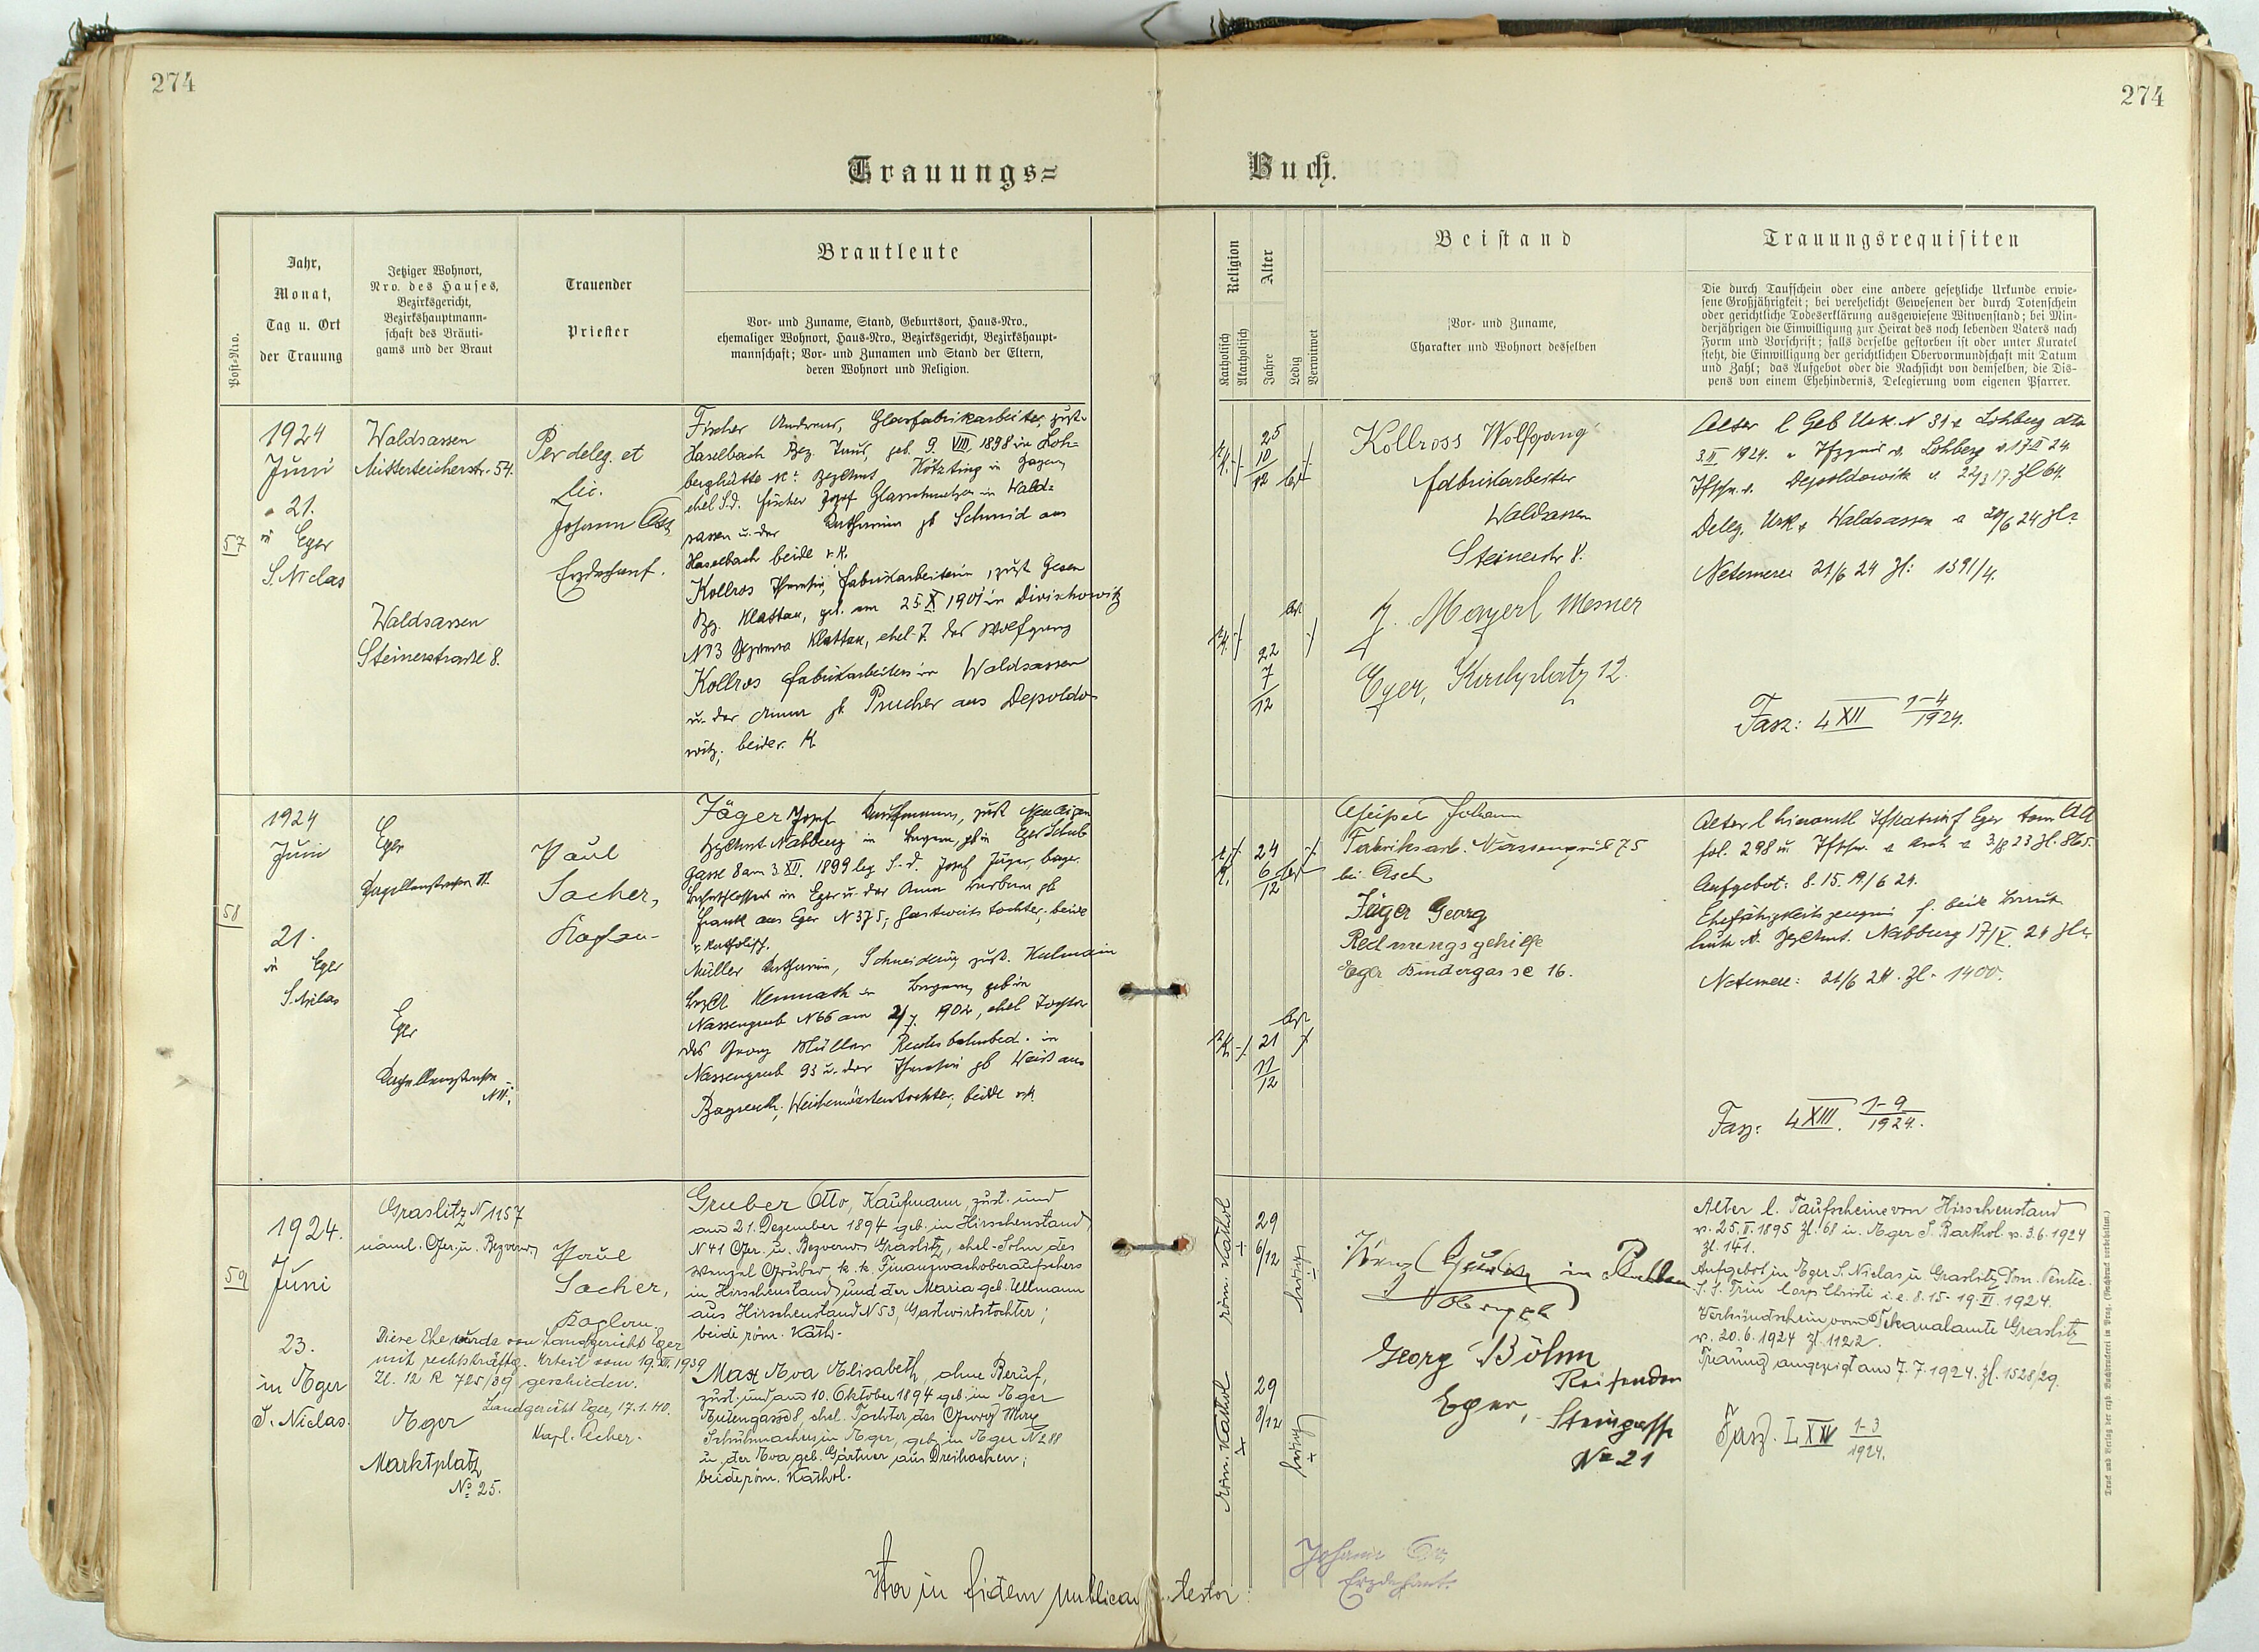 274
274
Trauungs=
Buch.
Post-Nro.
Jahr,
Monat,
Tag u. Ort
der Trauung
Jetziger Wohnort,
Nro. des Hauses,
Bezirksgericht,
Bezirkshauptmann-
schaft des Bräuti-
gams und der Braut
Trauender
Priester
Brautleute
Vor- und Zuname, Stand, Geburtsort, Haus-Nro.,
ehemaliger Wohnort, Haus-Nro., Bezirksgericht, Bezirkshaupt-
mannschaft; Vor- und Zunamen und Stand der Eltern,
deren Wohnort und Religion.
Religion
Katholisch
Akatholisch
Alter
Jahre
Ledig
Verwitwet
Beistand
Vor- und Zuname,
Charakter und Wohnort desselben
Trauungsrequisiten
Die durch Taufschein oder eine andere gesetzliche Urkunde erwie-
sene Großjährigkeit; bei verehelicht Gewesenen der durch Totenschein
oder gerichtliche Todeserklärung ausgewiesene Witwenstand; bei Min-
derjährigen die Einwilligung zur Heirat des noch lebenden Vaters nach
Form und Vorschrift; falls derselbe gestorben ist oder unter Kuratel
steht, die Einwilligung der gerichtlichen Obervormundschaft mit Datum
und Zahl; das Aufgebot oder die Nachsicht von demselben, die Dis-
pens von einem Ehehindernis, Delegierung vom eigenen Pfarrer.
57
1924
Juni
21.
in Eger
S. Niclas
Waldsassen
Mitterteicherstr. 54.
Waldsassen
Steinerstrasse 8.
Per deleg. et
lic.
Johann
Erzdechant.
Fischer Andreas, Glasfabrikarbeiter, zust.
Haselbach Bez. geb. 9. VIII. 1898 in Loh-
berghütte Bezamt Kötzting in Bayern,
ehel S. d. Fischer Josef in Wald-
sassen u. der Katharina gb Schmid aus
Haselbach beide r. k.
Kollros Theresia, Fabrikarbeiterin, zust
Bez. Klattau, geb. am 25. X. 1901 in Divischowitz
N 3 Klattau, ehel. T. des Wolfgang
Kollros Fabrikarbeiters in Waldsassen
u. der Anna gb. Prucher aus Depoldo-
witz; beide r. K.
25
10
12
22
7
12
Kollross Wolfgang
Fabrikarbeiter
Waldsassen
Steinerstr 8.
J. Mayerl Mesner
Eger, Kirchplatz 12.
Alter l Geb Urk. N 31 Lohberg dto
3. II 1924. Lohberg v. 17 II 24.
Depoldowitz v. 22/3 17. Zl 64.
Deleg. Urk. Waldsassen 20/6 24
21/6 24 Zl: 1391/4.
Fasz: 4 XII 1-4
1924.
58
1924
Juni
21.
in Eger
S. Niclas
Eger
Kapellenstrasse 11.
Eger
Kapellenstrasse
N 11.
Paul
Sacher,
Kaplan
Jäger Josef Kaufmann, zust Neu
Bezamt Nabburg in Bayern, gb in Eger Schub
gasse 8 am 3. XII. 1899 leg S. d. Josef Jäger, bayr.
in Eger u. der Anna Barbara gb
Frank aus Eger N 375, Gastwirts tochter, beide
r. katholisch.
Müller Katharina, Schneiderin, zust. Kulmain
Bez A Kemnath in Bayern, geb in
Nassengrub N 66 am 2/7. 1902, ehel Tochter
des Georg Müller in
Nassengrub 93 u. der Theresia gb Weiß aus
Bayreuth, Weichenwärterstochter, beide r. k.
24
6
12
21
11
12
Johann
Fabriksarb. Nassengrub 75
bei Asch
Jäger Georg
Rechnungsgehilfe
Eger Bindergasse 16.
Eger tom
fol. 298 u. Asch 3/8 23 Zl. 865.
Aufgebot: 8. 15. 19/6 24.
Ehefähigkeitszeugnis f. beide Braut-
leute d. Bezamt. Nabburg 17/V. 24
21/6 24. Zl. 1400.
Fasz: 4 XIII. 1-9
1924.
59
1924.
Juni
23.
in Eger
S. Niclas.
Graslitz N 1157
näml. Ger. u. Bezverw.
Diese Ehe wurde vom Landgericht Eger
mit rechtskräftig. Urteil vom 19. XII. 1939
Zl. 12 R 725/39 geschieden.
Landgericht Eger, 17.1.40.
Kapl. Acher.
Eger
Marktplatz
No 25.
Paul
Sacher,
Kaplan.
Gruber Otto, Kaufmann, zust. und
am 21. Dezember 1894 geb. in Hirschenstand
N 41 Ger. u. Bezverw. Graslitz, ehel. Sohn des
Wenzel Gruber k. k. Finanzwachoberaufsehers
in Hirschenstand und der Maria geb. Ullmann
aus Hirschenstand N 53, Gastwirtstochter;
beide röm. Kath.
Eva Elisabeth, ohne Beruf,
zust. und am 10. Oktober 1894 geb. in Eger
ehel. Tochter des Georg
Schuhmachers in Eger, geb. in Eger N 288
u. der Eva geb. Gärtner aus Dreihacken;
beide röm. Kathol.
röm. Kathol
röm. Kathol
29
6/12
29
8/12
ledig
ledig
Georg Böhm
Reisender
Eger, Steingasse
No 21
Alter l. Taufscheine von Hirschenstand
v. 25. II. 1895 Zl. 68 u. Eger S. Barthol. v. 3.6.1924
Zl. 141.
Aufgebot in Eger S. Niclas u. Graslitz Dom. Pentec.
S. S. Trin Corp. Christi i. e. 8. 15. 19. VI. 1924.
Verkündschein vom Dekanalamte Graslitz
v. 20. 6. 1924 Zl. 1122.
Trauung angezeigt am 7. 7. 1924. Zl. 1528/29.
Fasz. L XIV 1-3
1924.
Ita in fidem publicam testor:
Johann
Erzdechant.
Druck und Verlag der erzb. Buchdruckerei in Prag. (Nachdruck vorbehalten.)